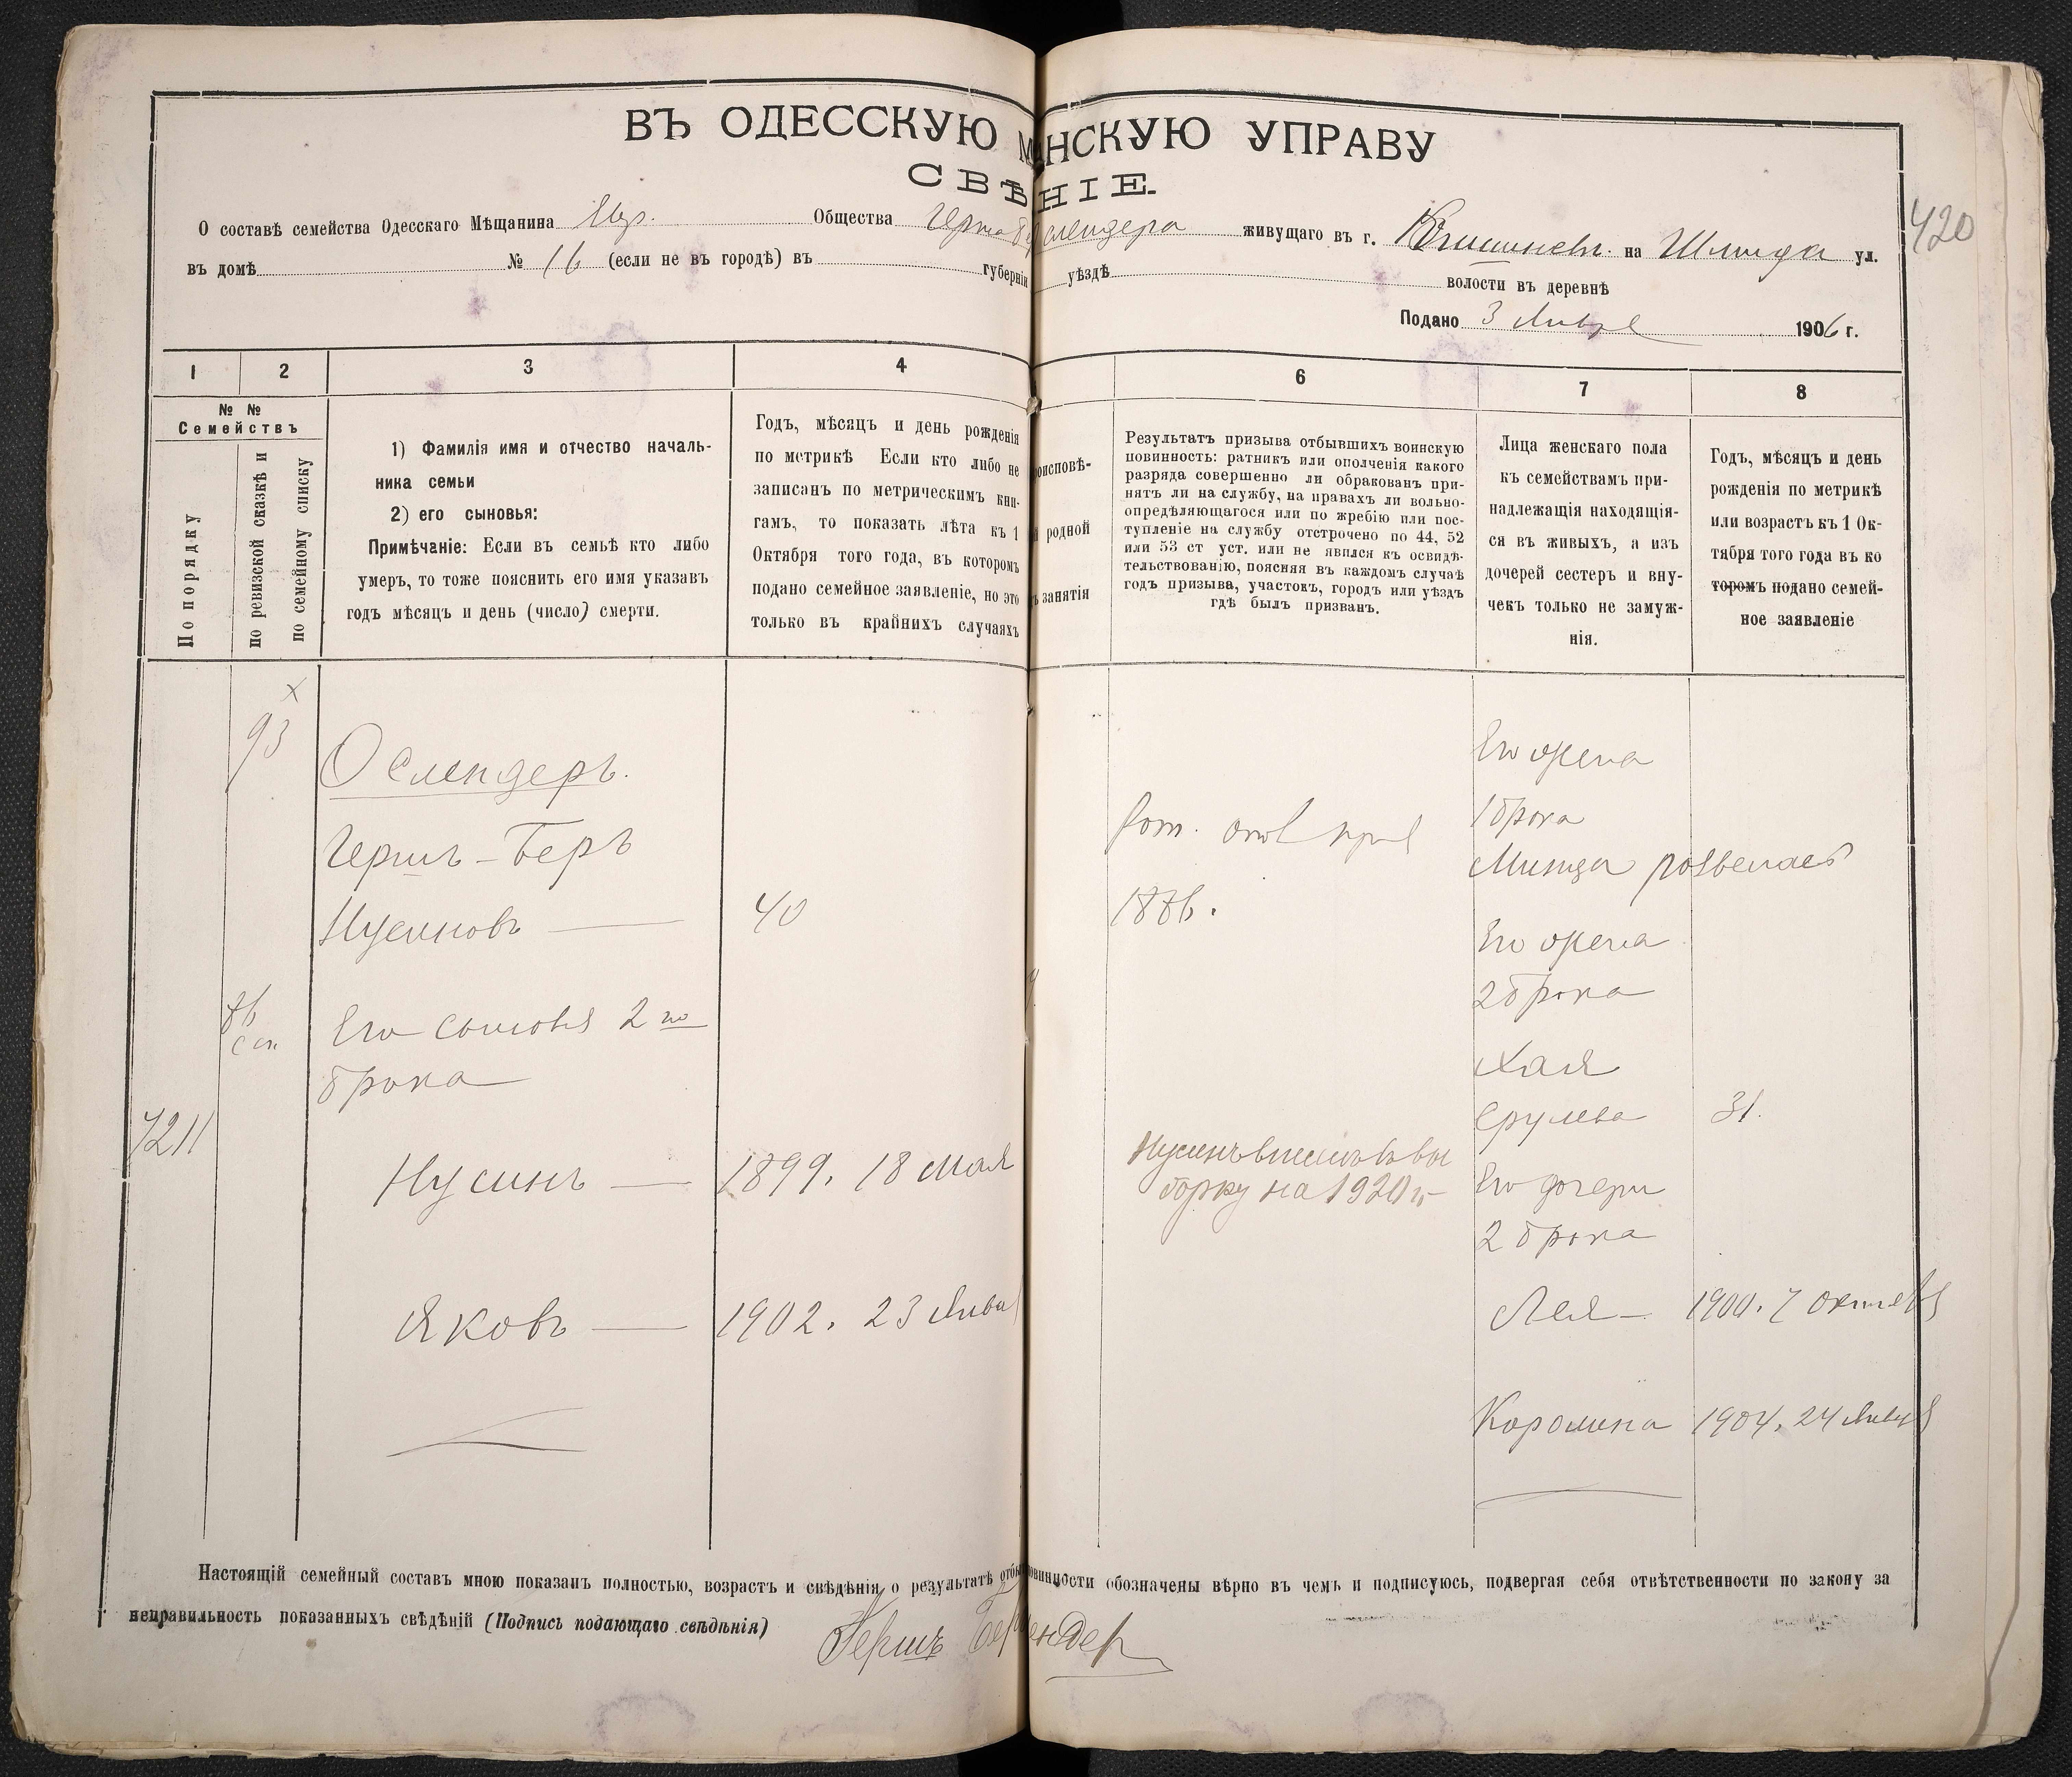 ВЪ ОДЕССКУЮ М НСКУЮ УПРАВУ
СВѢ НІЕ.
О составѣ семейства Одесскаго Мѣщанина Евр. Общества живущаго въ г. Кишиневѣ на Шмидта ул.
420
въ домѣ № 16 (если не въ городѣ) въ губерніи уѣздѣ волости въ деревнѣ
Подано 3 Января 1906 г.
1 2 3 4 6 7 8
№ №
Семействъ
По порядку
по ревизской сказкѣ и
по семейному списку
1) Фамилія имя и отчество началь-
ника семьи
2) его сыновья:
Примѣчаніе: Если въ семьѣ кто либо
умеръ, то тоже пояснить его имя указавъ
годъ мѣсяцъ и день (число) смерти.
Годъ, мѣсяцъ и день рожденія
по метрикѣ Если кто либо не
записанъ по метрическимъ кни-
гамъ, то показать лѣта къ 1
Октября того года, въ которомъ
подано семейное заявленіе, но это
только въ крайнихъ случаяхъ
оисповѣ-
родной
занятія
Результатъ призыва отбывшихъ воинскую
повинность: ратникъ или ополченія какого
разряда совершенно ли обракованъ при-
нятъ ли на службу, на правахъ ли вольно-
опредѣляющагося или по жребію или пос-
тупленіе на службу отстрочено по 44, 52
или 53 ст уст. или не явился къ освидѣ-
тельствованію, поясняя въ каждомъ случаѣ
годъ призыва, участокъ, городъ или уѣздъ
гдѣ былъ призванъ.
Лица женскаго пола
къ семействамъ при-
надлежащія находящія-
ся въ живыхъ, а изъ
дочерей сестеръ и вну-
чекъ только не замуж-
нія.
Годъ, мѣсяцъ и день
рожденія по метрикѣ
или возрастъ къ 1 Ок-
тября того года въ ко
торомъ подано семей-
ное заявленіе
93
Ослендеръ.
Гершъ-Беръ
Нусиновъ — 40
Его сыновья 2го
брака
7211
Нусинъ — 1899. 18 мая
Яковъ — 1902. 23 Янва
Рат. опол
1886.
Нусинъ внесенъ въ вы
борку на 1920 г.
Его жена
1 брака
Минца развелась
Его жена
2 брака
Хая
Срулева 31.
Его дочери
2 брака
Лея — 1900. 7 октября
Королина 1904. 24 Января
Настоящій семейный составъ мною показанъ полностью, возрастъ и свѣдѣнія о результатѣ отбы овинности обозначены вѣрно въ чемъ и подписуюсь, подвергая себя отвѣтственности по закону за
неправильность показанныхъ свѣдѣній (Подпись подающаго свѣдѣнія) Гершъ Бер ендер